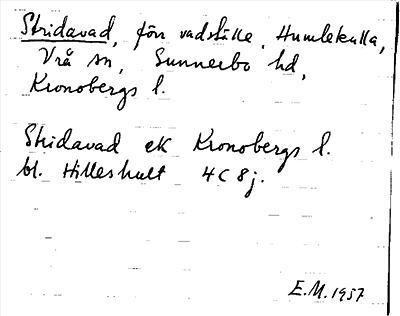 Stridavad, förr vadställe, Humlekulla,
Vrå sn, Sunnerbo hd,
Kronobergs l.
Stridavad ek Kronobergs l.
bl. Hilleshult 4C 8j.
E.M. 1957